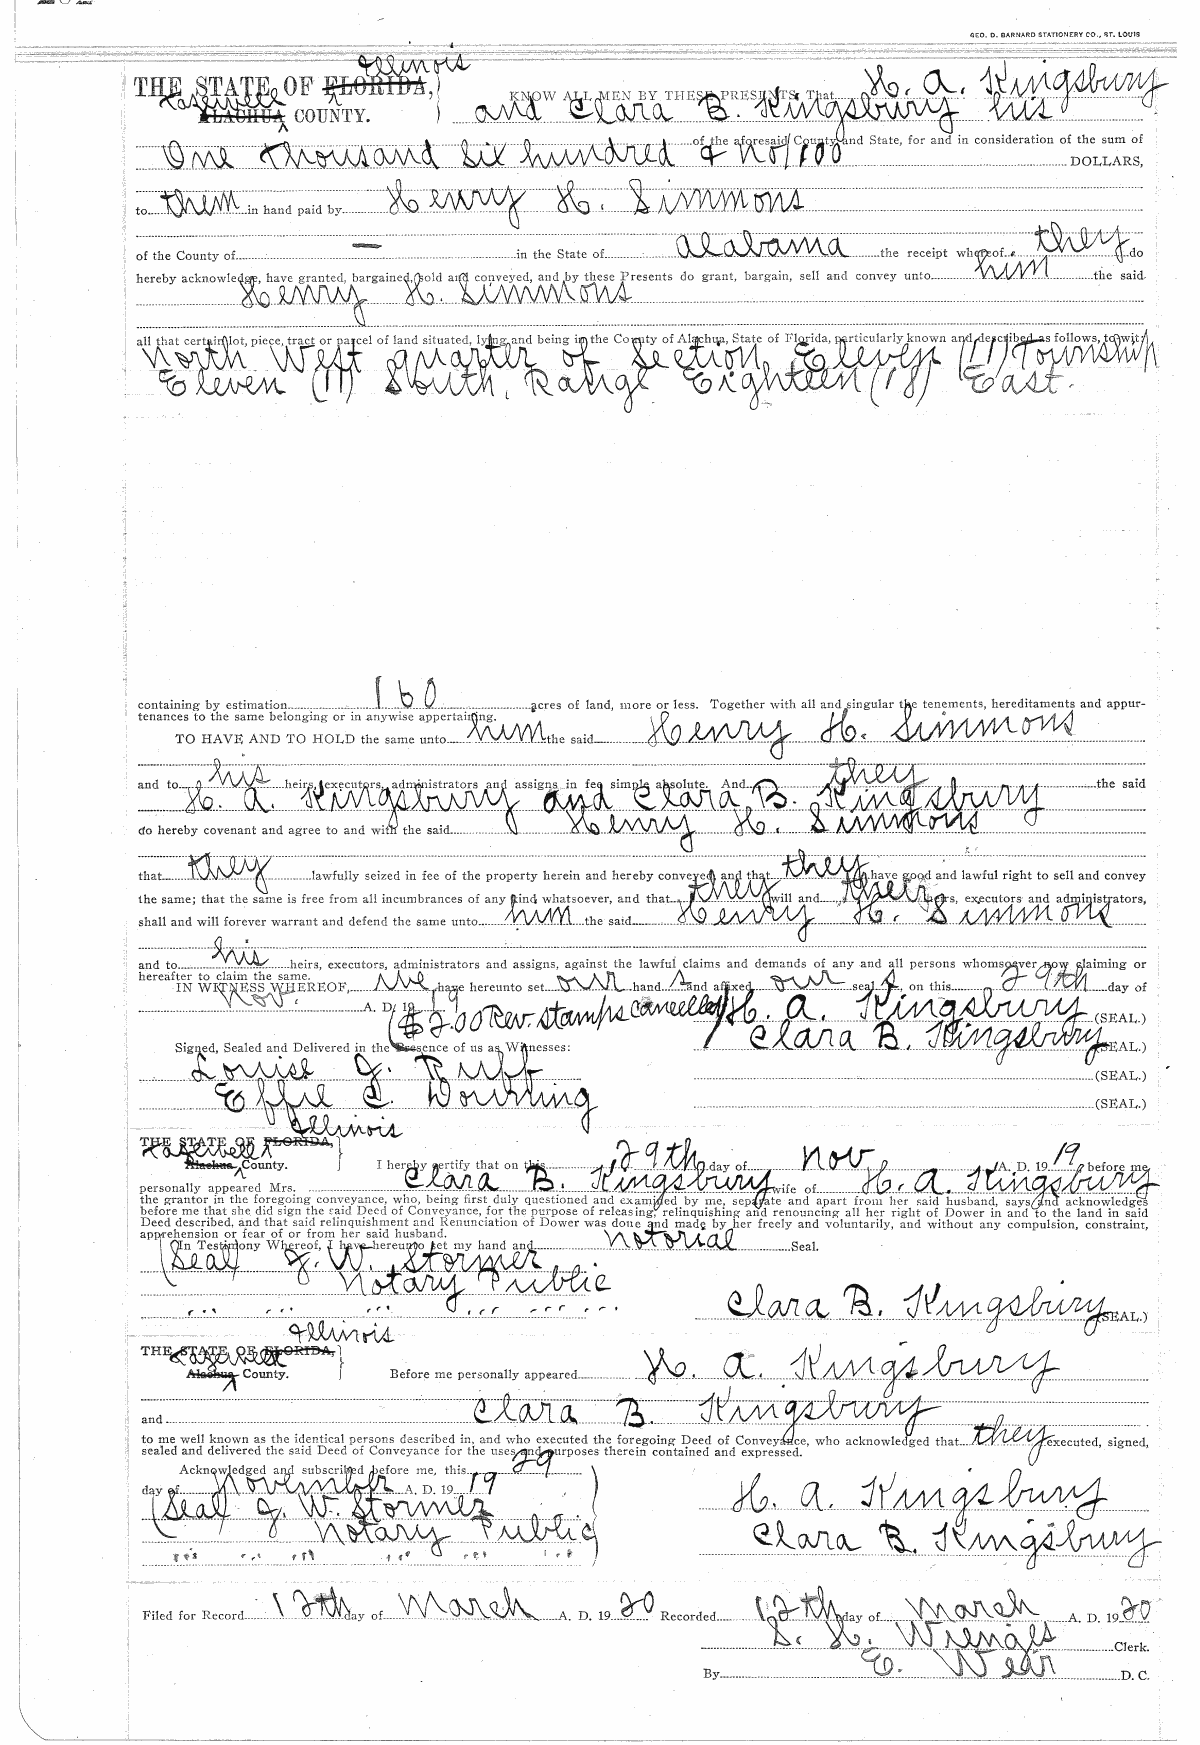 GEO. D. BARNARD STATIONERY CO., ST. LOUIS
Illinois
THE STATE OF FLORIDA,
KNOW ALL MEN BY THESE PRESENTS, That H. A. Kingsbury
Tazewell
ALACHUA COUNTY.
and Clara B. Kingsbury his
of the aforesaid County and State, for and in consideration of the sum of
One thousand six hundred & no/100 DOLLARS,
to them in hand paid by Henry H. Simmons
of the County of — in the State of Alabama the receipt whereof they do
hereby acknowledge, have granted, bargained, sold and conveyed, and by these Presents do grant, bargain, sell and convey unto him the said
Henry H. Simmons
all that certain lot, piece, tract or parcel of land situated, lying and being in the County of Alachua, State of Florida, particularly known and described as follows, to wit:
North West quarter of Section Eleven (11) Township
Eleven (11) South, Range Eighteen (18) East.
containing by estimation 160 acres of land, more or less. Together with all and singular the tenements, hereditaments and appur-
tenances to the same belonging or in anywise appertaining.
TO HAVE AND TO HOLD the same unto him the said Henry H. Simmons
and to his heirs, executors, administrators and assigns in fee simple absolute. And they the said
H. A. Kingsbury and Clara B. Kingsbury
do hereby covenant and agree to and with the said Henry H. Simmons
that they lawfully seized in fee of the property herein and hereby conveyed and that they have good and lawful right to sell and convey
the same; that the same is free from all incumbrances of any kind whatsoever, and that they will and their heirs, executors and administrators,
shall and will forever warrant and defend the same unto him the said Henry H. Simmons
and to his heirs, executors, administrators and assigns, against the lawful claims and demands of any and all persons whomsoever now claiming or
hereafter to claim the same.
IN WITNESS WHEREOF, we have hereunto set our hand s and affixed our seal s, on this 29th day of
Nov. A. D. 19 19
($2.00 Rev. stamps cancelled) H. A. Kingsbury (SEAL.)
Clara B. Kingsbury (SEAL.)
Signed, Sealed and Delivered in the Presence of us as Witnesses:
Louise J. Ruff (SEAL.)
Effie C. (SEAL.)
Illinois
THE STATE OF FLORIDA,
Tazewell
Alachua County.
I hereby certify that on this 29th day of Nov A. D. 19 19 before me
personally appeared Mrs. Clara B. Kingsbury wife of H. A. Kingsbury
the grantor in the foregoing conveyance, who, being first duly questioned and examined by me, separate and apart from her said husband, says and acknowledges
before me that she did sign the said Deed of Conveyance, for the purpose of releasing, relinquishing and renouncing all her right of Dower in and to the land in said
Deed described, and that said relinquishment and Renunciation of Dower was done and made by her freely and voluntarily, and without any compulsion, constraint,
apprehension or fear of or from her said husband.
In Testimony Whereof, I have hereunto set my hand and notorial Seal.
(Seal) J. W. Stormer
Notary Public
Clara B. Kingsbury (SEAL.)
Illinois
THE STATE OF FLORIDA,
Tazewell
Alachua County.
Before me personally appeared H. A. Kingsbury
and Clara B. Kingsbury
to me well known as the identical persons described in, and who executed the foregoing Deed of Conveyance, who acknowledged that they executed, signed,
sealed and delivered the said Deed of Conveyance for the uses and purposes therein contained and expressed.
Acknowledged and subscribed before me, this 29
day of November A. D. 19 19
H. A. Kingsbury
(Seal) J. W. Stormer
Notary Public
Clara B. Kingsbury
Filed for Record 12th day of March A. D. 19 20 Recorded 12th day of March A. D. 19 20
S. H. Wienges Clerk.
By E. Wear D. C.